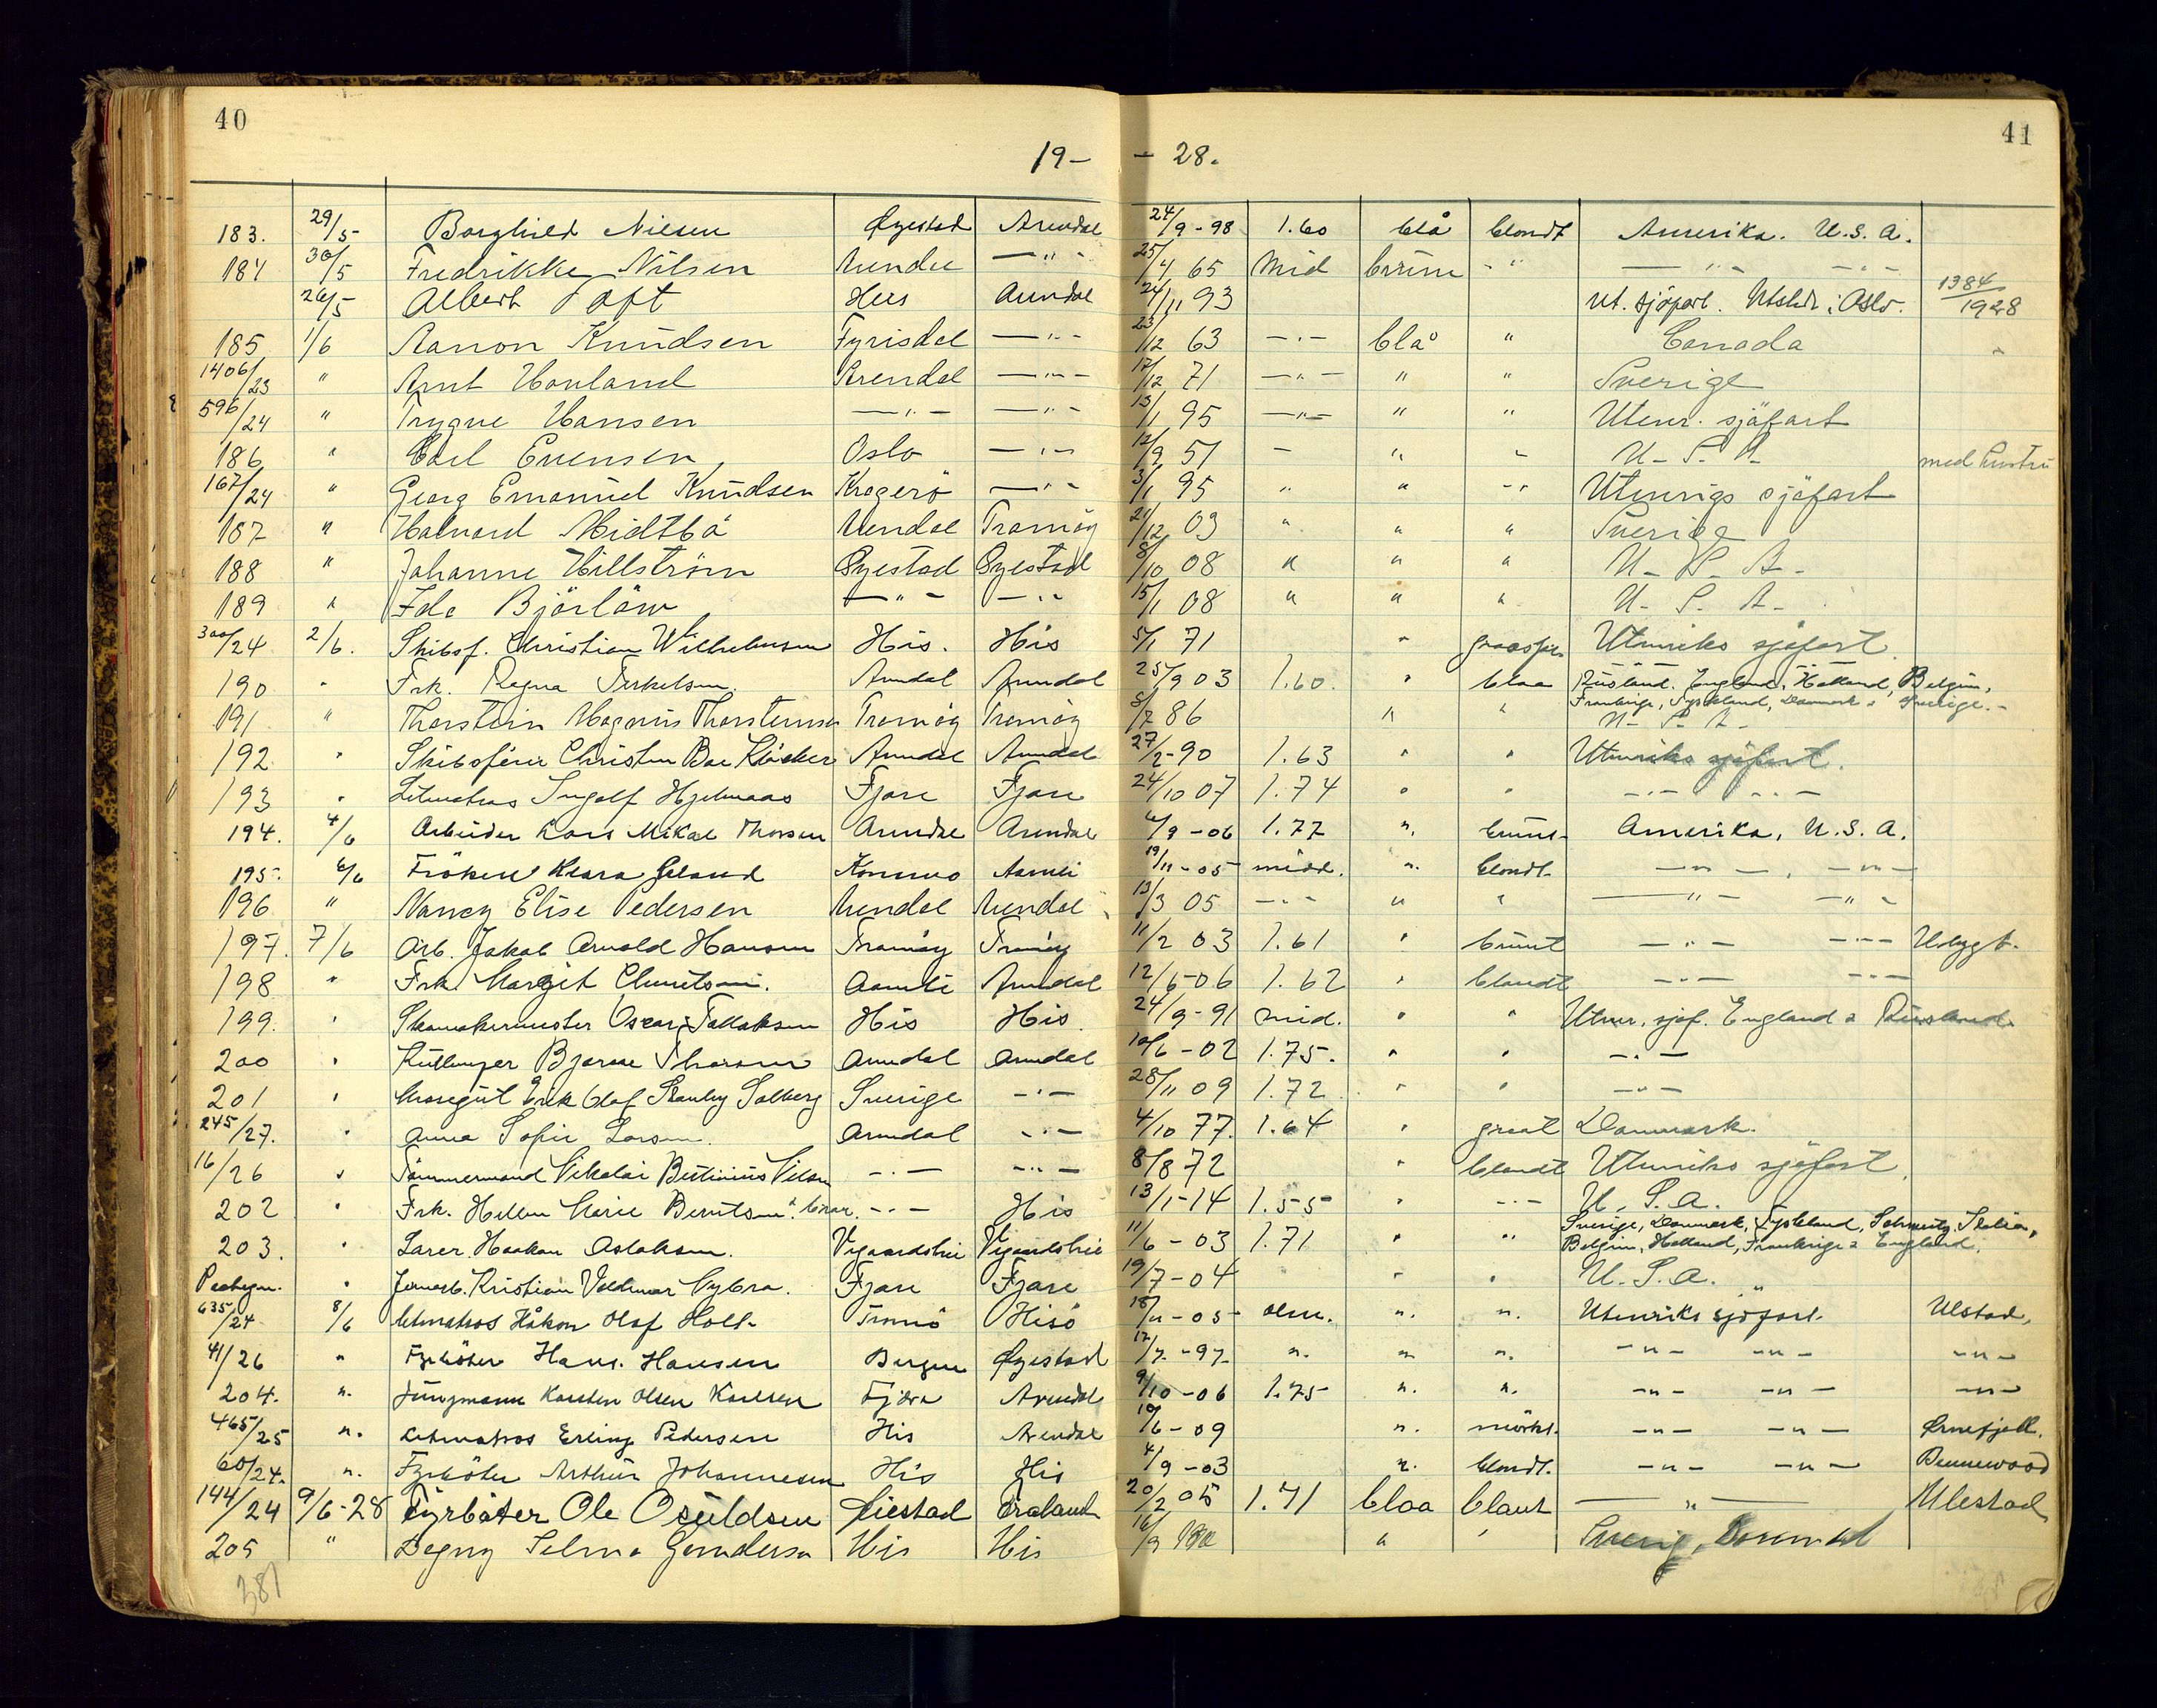 40
41
19- - 28.
183. 29/5 Borghild Nilsen Øyestad Arendal 24/9-98 1.60 blå blondt Amerika. U.S.A.
184 30/5 Fredrikke Nilsen Arendal —"- 25/4 65 Mid brüne -" —"- -"-
26/5 Albert Toft Hiis Arendal 24/11 93 Ut. sjöfart. Utstedt i Oslo. 1384/1928
185 1/6 Aanon Knüdsen Fyrisdal —"- 23/12 63 —"- blaa " Canada
1406/23 " Arnt Hauland Arendal —"- 17/12 71 —"- " " Sverige
596/24 " Trygve Hansen —"- —"- 13/1 95 —"- " " Utenr. sjöfart
186 " Carl Evensen Oslo —"- 12/9 51 — " " U-S.A. med hustru
167/24 " Georg Emanuel Knüdsen Kragerö —"- 3/1 95 " " -" Utenrigs sjöfart
187 " Halvard Midtbö Arendal Tromöy 21/12 03 " " " Sverige
188 " Johanne Hillström Öyestad Öyestad 8/10 08 " " " U-S.A-
189 " Ida Björlöw —"- —"- 15/1 08 " " " U-S.A-
300/24 2/6. Skibsf. Christian Wilhelmsen His. His 5/1 71 " Utenriks sjöfart
190 " Frk. Ragna Terkelsen. Arendal Arendal 25/9 03 1.60. " blaa Rüsland. England, Holland, Belgien,
Frankrige, Tyskland, Danmark & Sverige.-
191 " Thorstein Magnus Thorstensen Tromöy Tromöy 8/7 86 " " U-S.A-
192 " Skibsförer Christen Boe Arendal Arendal 27/2-90 1.63 " " Utenriks sjöfart.
193 " Letmatros Ingolf Hjelmaas Fjære Fjære 24/10 07 1.74 " " —"- -"-
194. 4/6 Arbeider Lars Mikal Thorsen Arendal Arendal 4/9-06 1.77 ". brünt- Amerika, U.S.A.
195. 6/6 Fröken Klara Aamli 19/11-05 midd. ". blondt. —"-, -"-
196 " Nancy Elise Pedersen Arendal Arendal 13/3 05 -"- " " —"- -"-
197. 7/6 Arb. Jakob Arnold Hansen Tromöy Tromöy 11/2 03 1.61 " brünt —"- -"- Utbygt.
198 " Frk. Margit Aamli Arendal 12/6-06 1.62 " blondt —"- -"-
199. " Skomakermester Oscar Tallaksen His His. 24/9-91 mid. " " Utenr. sjöf. England & Rüsland.
200 " Bjarne Thorsen Arendal Arendal 10/6-02 1.75. " " —"-
201 " Messegüt Erik Olaf Stanley Solberg Sverige -"- 28/11 09 1.72 " " —"-
245/27. " Anna Sofie Larsen. Arendal -"- 4/10 77. 1.64 " graat Danmark.
16/26 " Tömmermand Nikolai Nilsen -"- -"- 8/8 72 " blondt Utenriks sjöfart
202 " Frk. Hellen Marie Berntsen -"- His 13/1-14 1.55 " -"- U.S.A.
203. " Lærer Haakon Aslaksen. Vegaardshei Vegaardshei 11/6-03 1.71 " " Sverige, Danmark, Tyskland, Schweitz, Italia,
Belgien, Holland, Frankrige & England.
" Kristian Valdemar Fjære Fjære 19/7-04 " " U.S.A. "
635/24 8/6 Letmatros Håkon Olaf Holt- Tromö Hisö 18/11-05 alm. ". ". Utenriks sjöfart. Ulstad,
41/26 " Fyrböter Hans. Hansen Bergen Øyestad 17/7-97 ". " ". -"- -"- -"-
204. ". Jüngmann Karsten Olsen Karlsen Fjære Arendal 9/10-06 1.75 ". ". -"- -"- -"-
465/25 ". Letmatros Erling Pedersen His Arendal 10/6-09 ". mörkt. -"- -"- Ørnefjell.
60/24. ". Fyrböter Arthür Johannesen His His 4/9-03 ". blondt. -"- -"- Bennewood
144/24 9/6-28 Fyrböter Ole Osüldsen Öiestad 20/2 05 1.71 blaa blant —"— Ulestad
205 " Dagny Selma Gundersen His His 16/9 " ' Sverig, Danmark
381